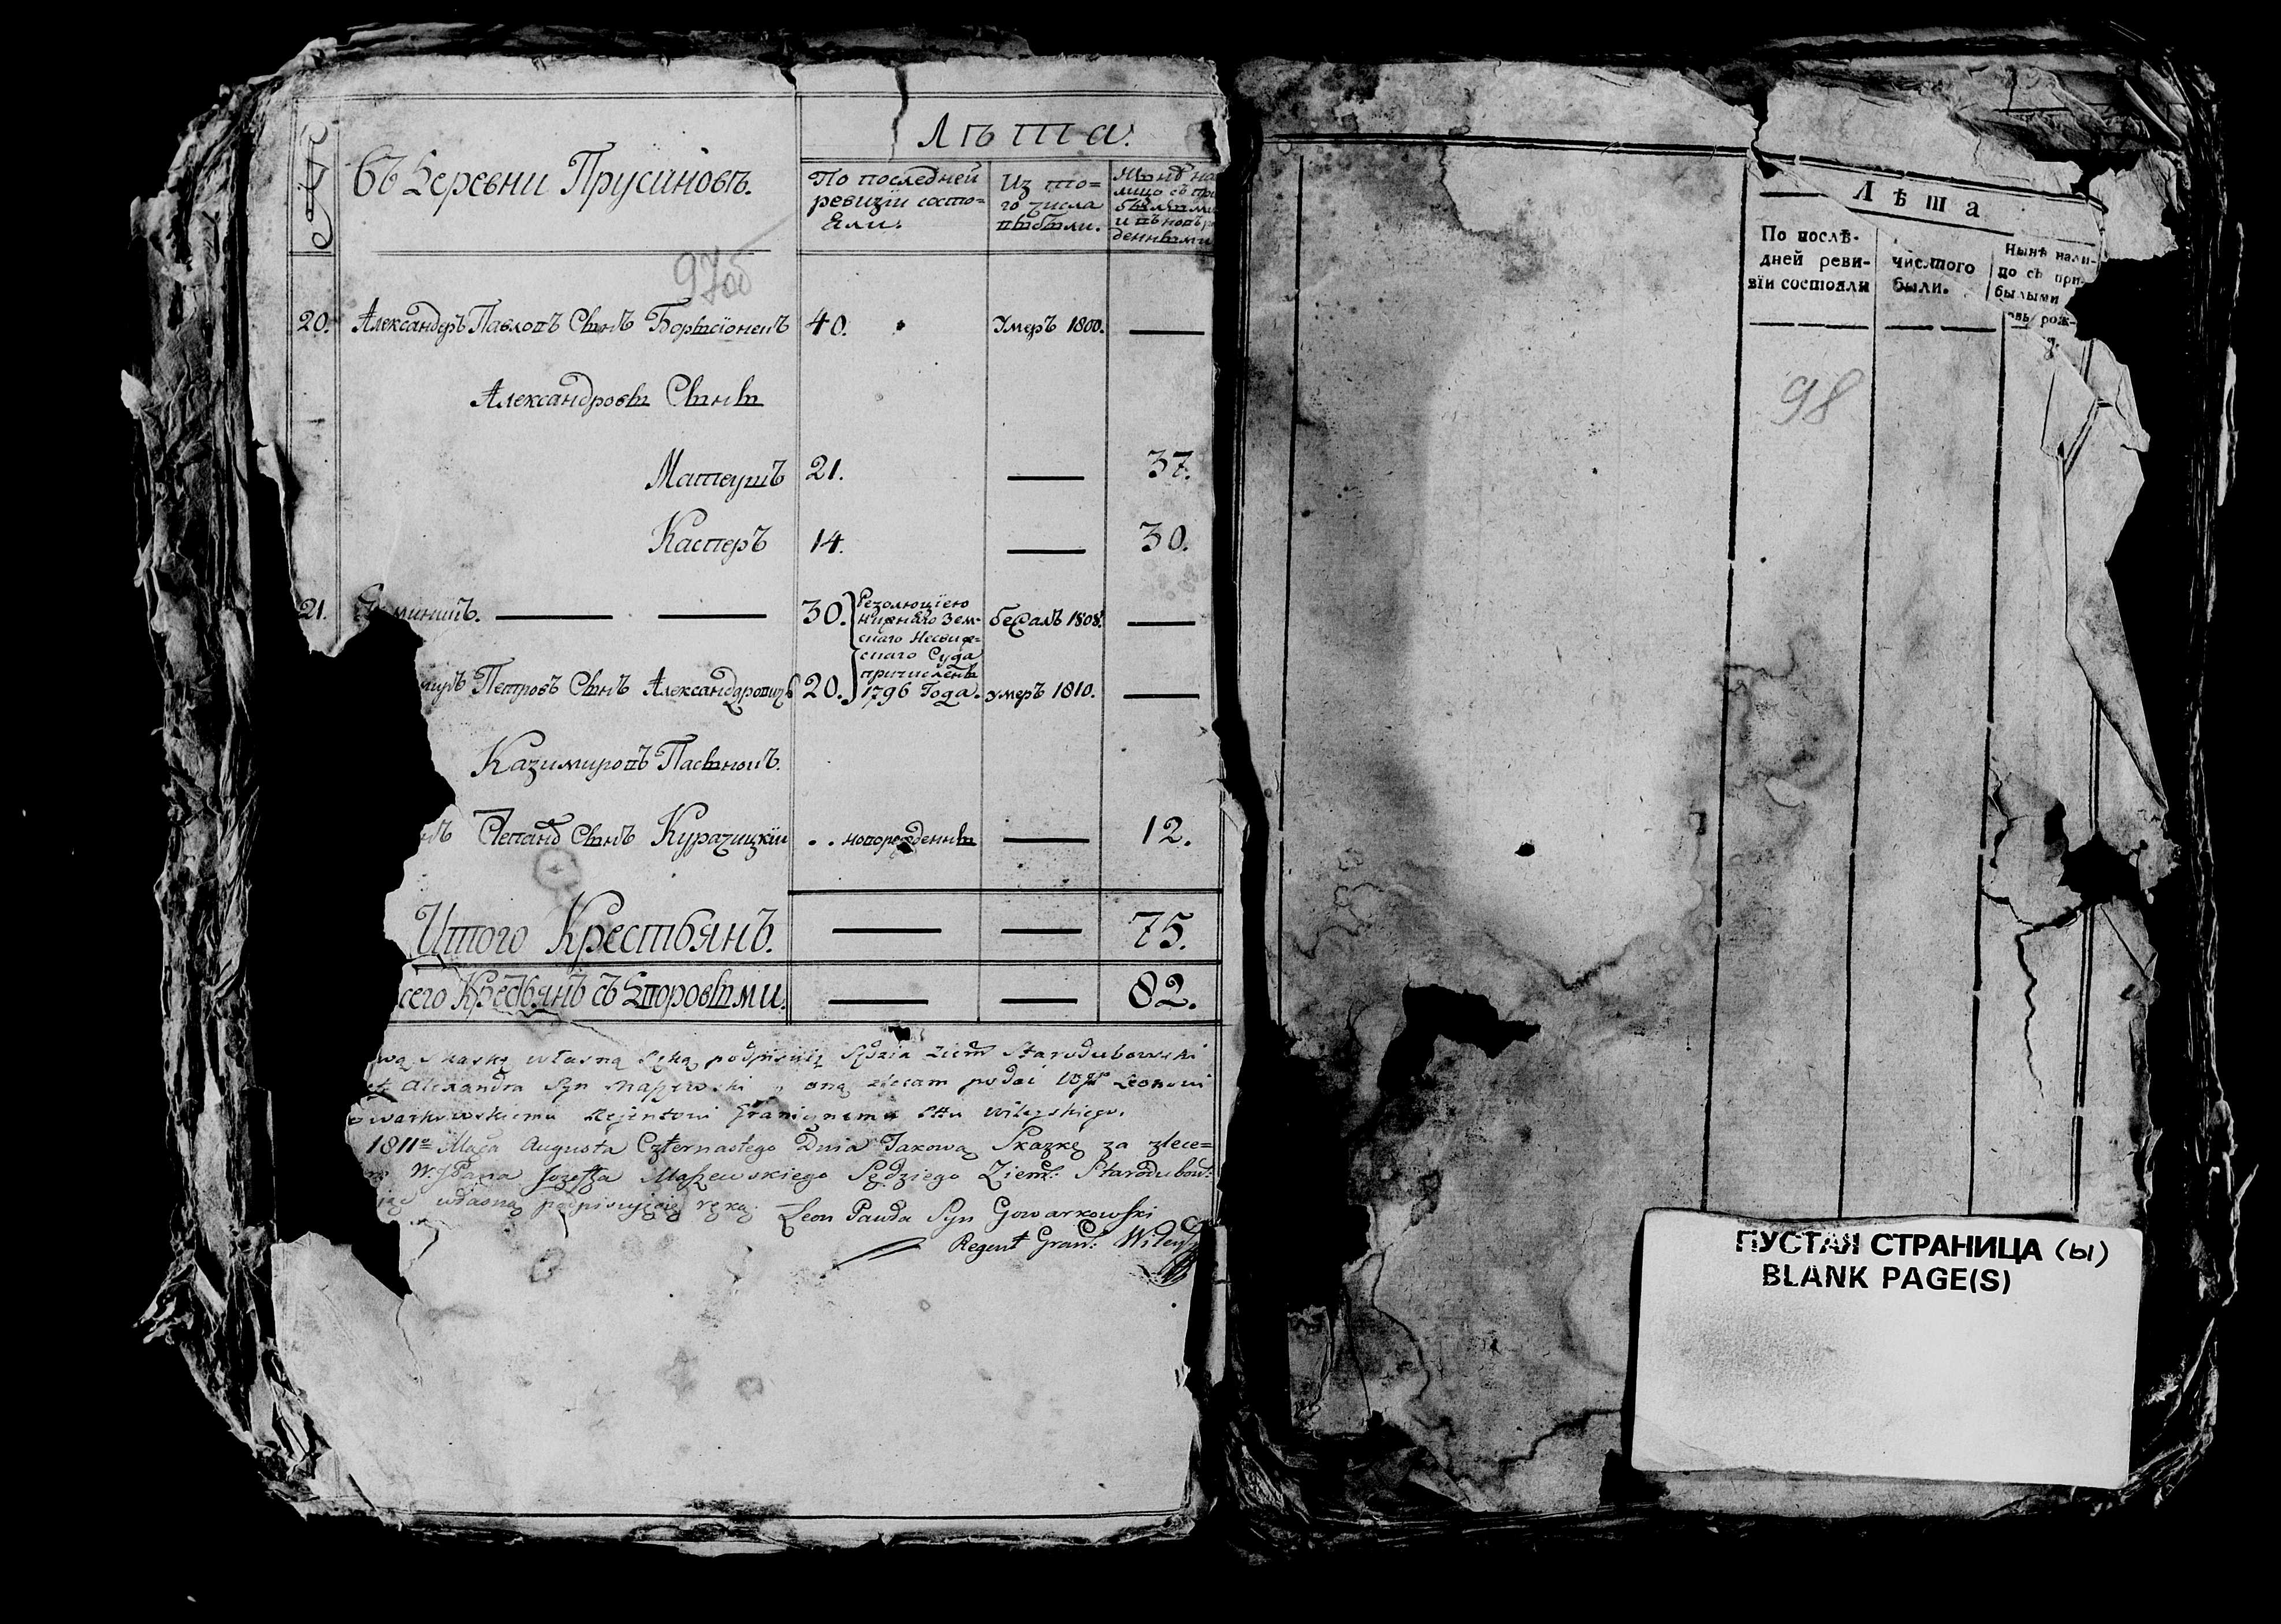 Въ Деревни Прусиновъ.
Лѣта.
По последней ревизіи состо=
яли.
Из то=
го числа
выбыли.
Нынѣ на
лицо съ при
былыми
и въновъ
денными
97об
20. Александеръ Павловъ Сынъ 40. Умеръ 1800. —
Александровы Сыны
Матеушъ 21. — 37.
Касперъ 14. — 30.
21. — — 30. Резолюціею
нижняго Зем=
скаго Несвиж=
скаго Суда
причислены
1796 Года.
бежалъ 1808. —
Петровъ Сынъ Александровичъ 20. умеръ 1810. —
Казимировъ Пасынокъ.
Сынъ Курачицкіи . . новорожденны — 12.
Итого Крестьянъ. — — 75.
сего Крестьянъ съ Дворовыми. — — 82.
własną ręką podpisuię Sędzia Ziem Starodubowski
Alexandra Syn Maszewski oną zlecam podać Leonowi
Rejentowi Granicznemu Pttu Wileyskiego.
1811º Maca Augusta Czternastego Dnia Takową Skazkę za zlece=
W. JPana Jozefa Maszewskiego Sędziego Ziem: Starodubow:
własną podpisuięcię ręką. Leon Pawła Syn Gowarkowski
Regent Gran: Wileys
Лѣта
По послѣ-
дней реви-
зїи состояли
числтого
были.
Нынѣ нали-
цо съ при-
былыми
овь рож-
98
ПУСТАЯ СТРАНИЦА (ы)
BLANK PAGE(S)